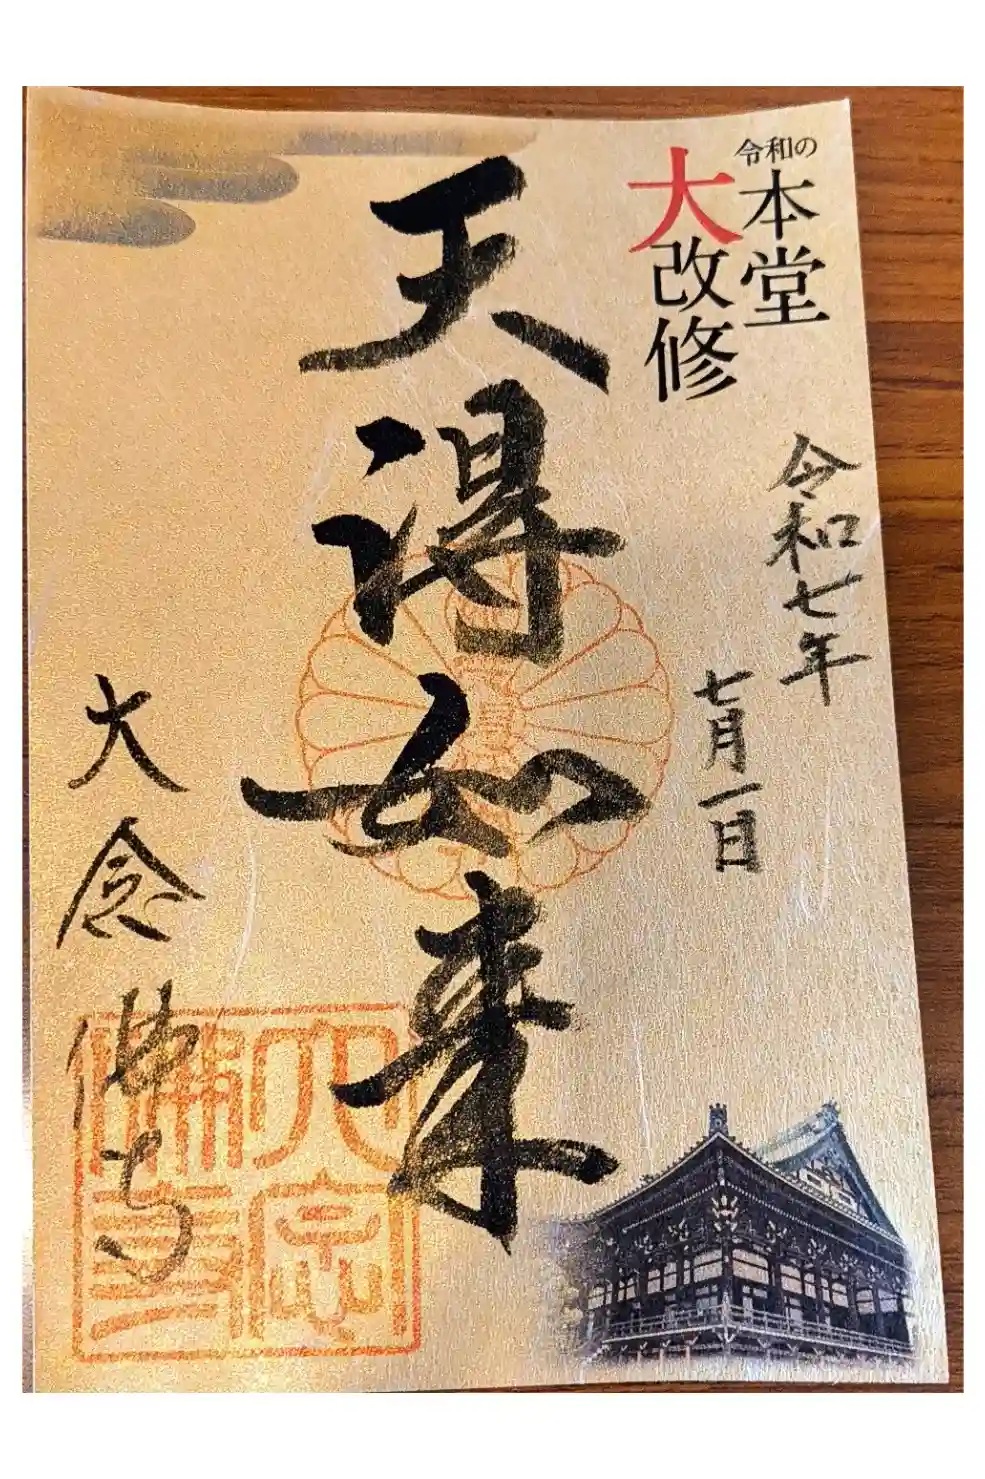 令和の
本堂
大改修
令和七年
七月一日
天得如来
大念佛寺
大念佛寺